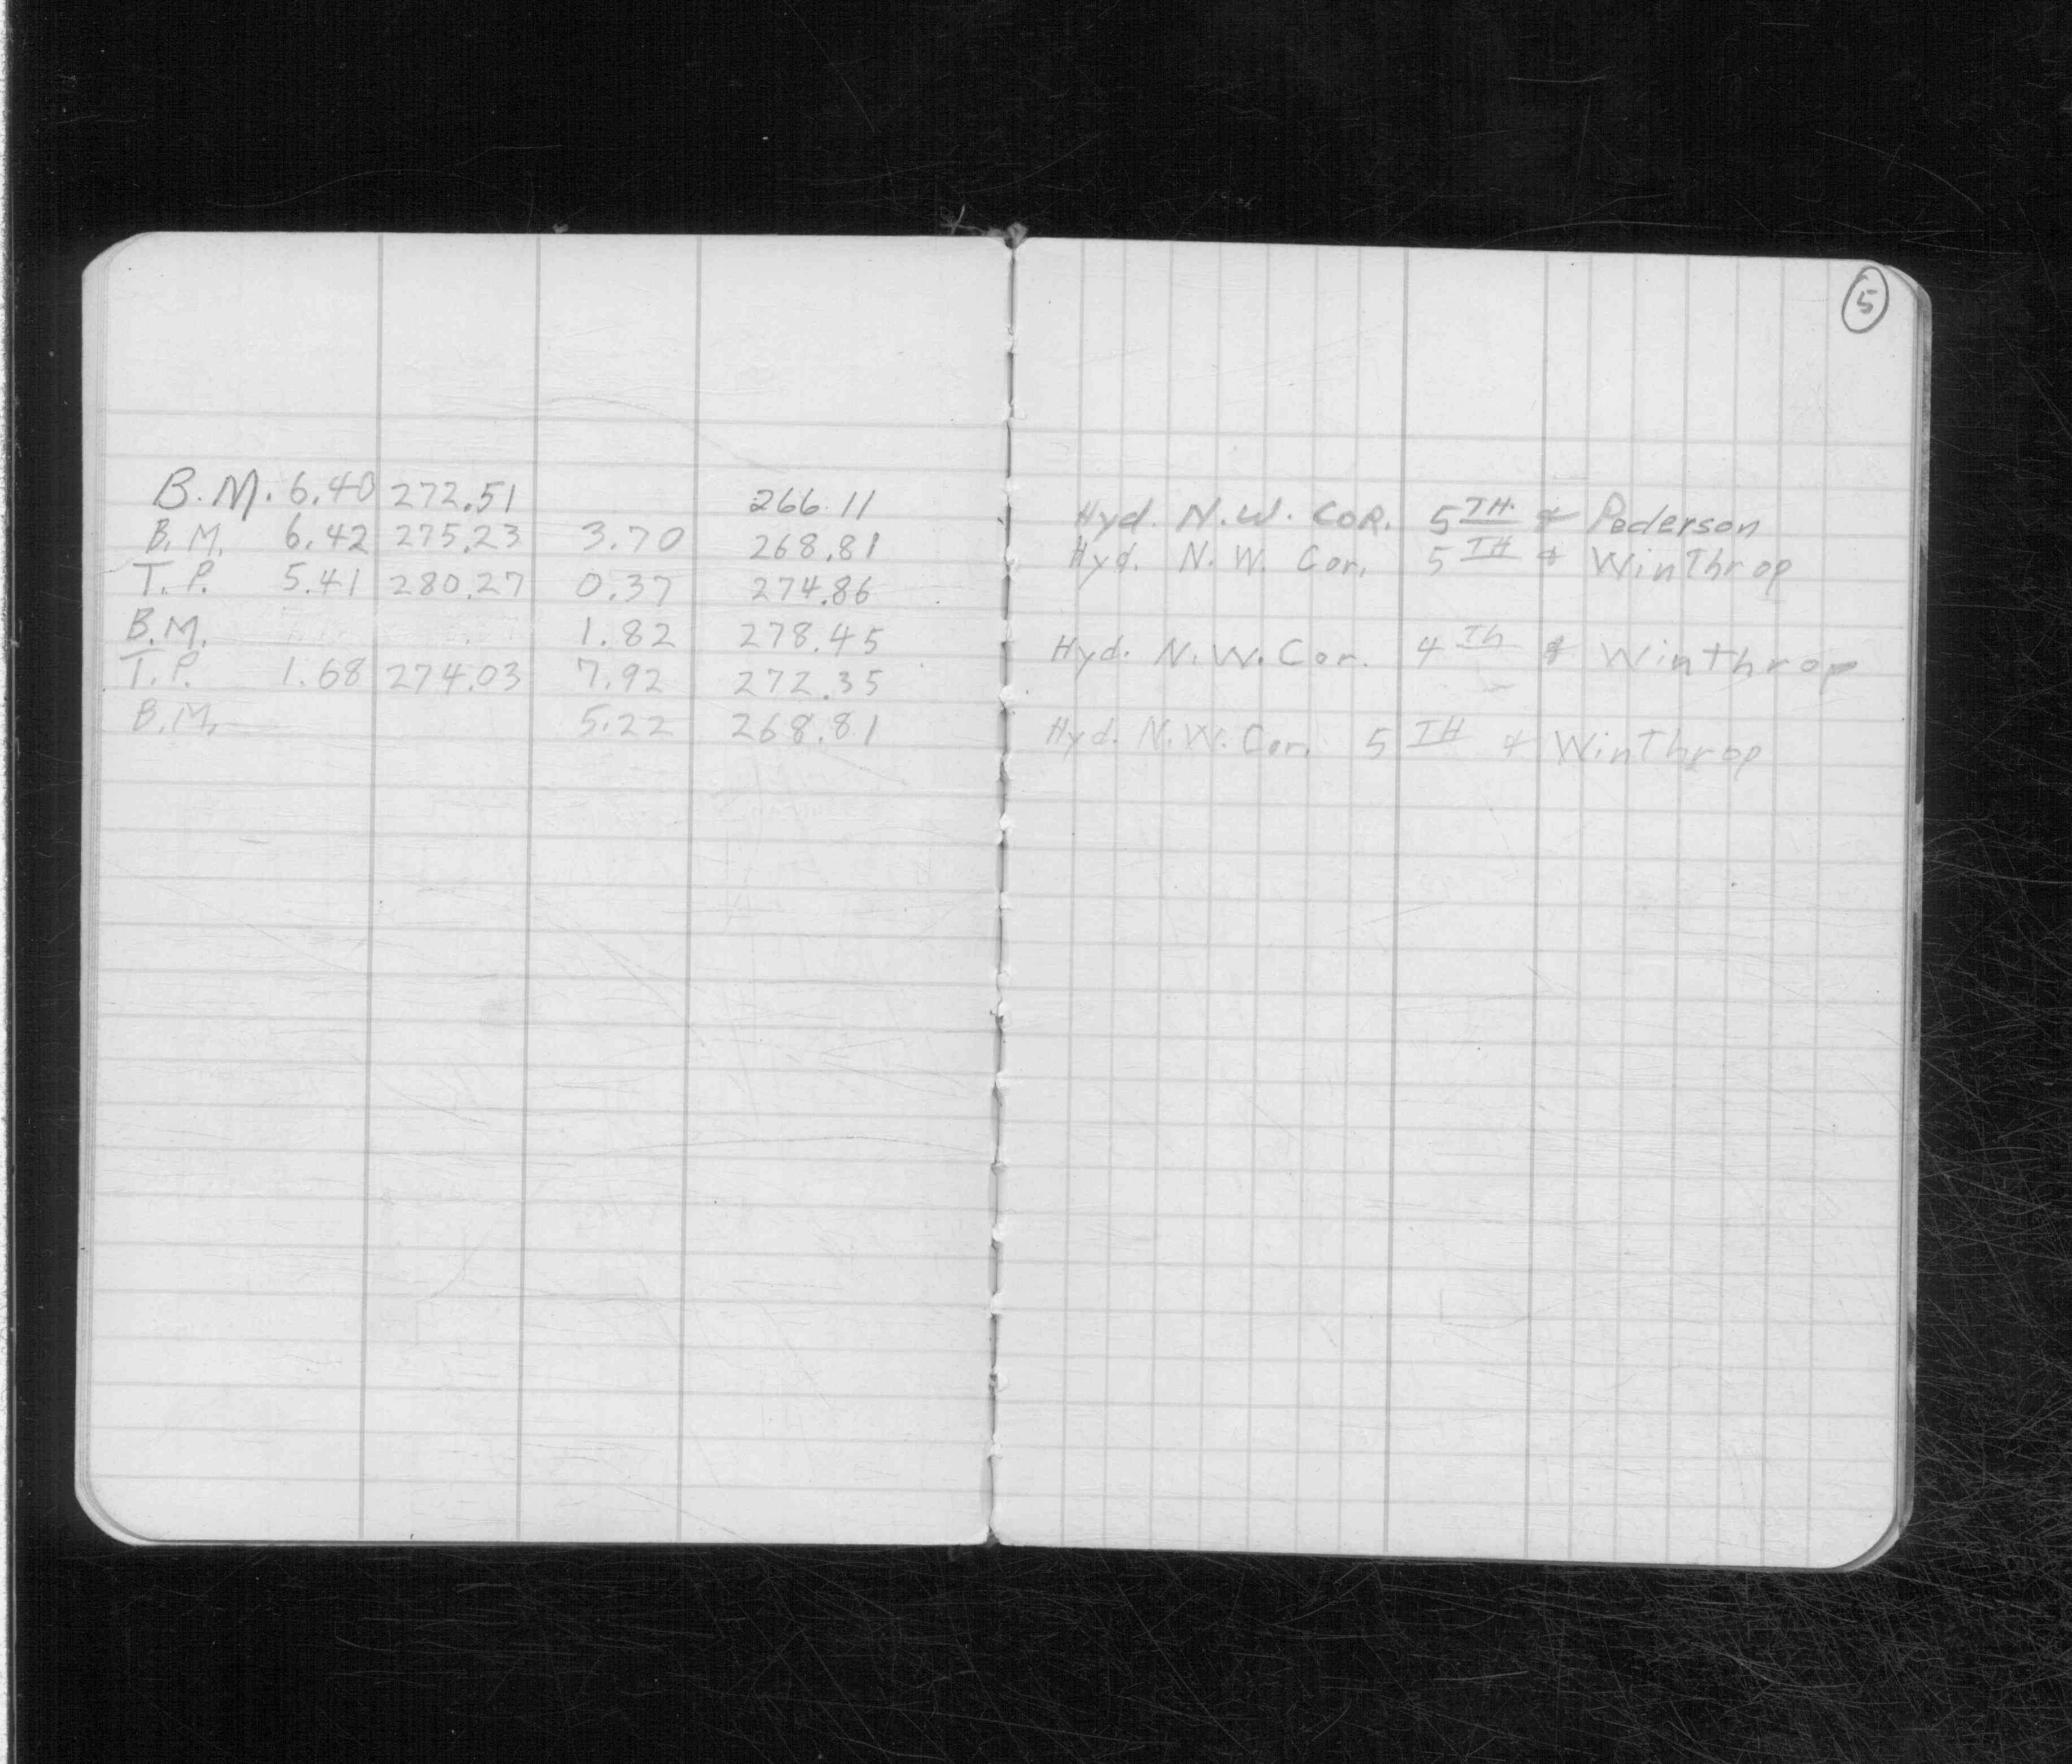 5
B.M. 6.40 272.51 266.11 Hyd. N.W. COR. 5TH. & Pederson
B.M. 6.42 275.23 3.70 268.81 Hyd. N.W. Cor. 5TH & WinThrop
T.P. 5.41 280.27 0.37 274.86
B.M. 1.82 278.45 Hyd. N.W. Cor. 4Th & Winthrop
T.P. 1.68 274.03 7.92 272.35
B.M. 5.22 268.81 Hyd. N.W. Cor. 5TH & WinThrop